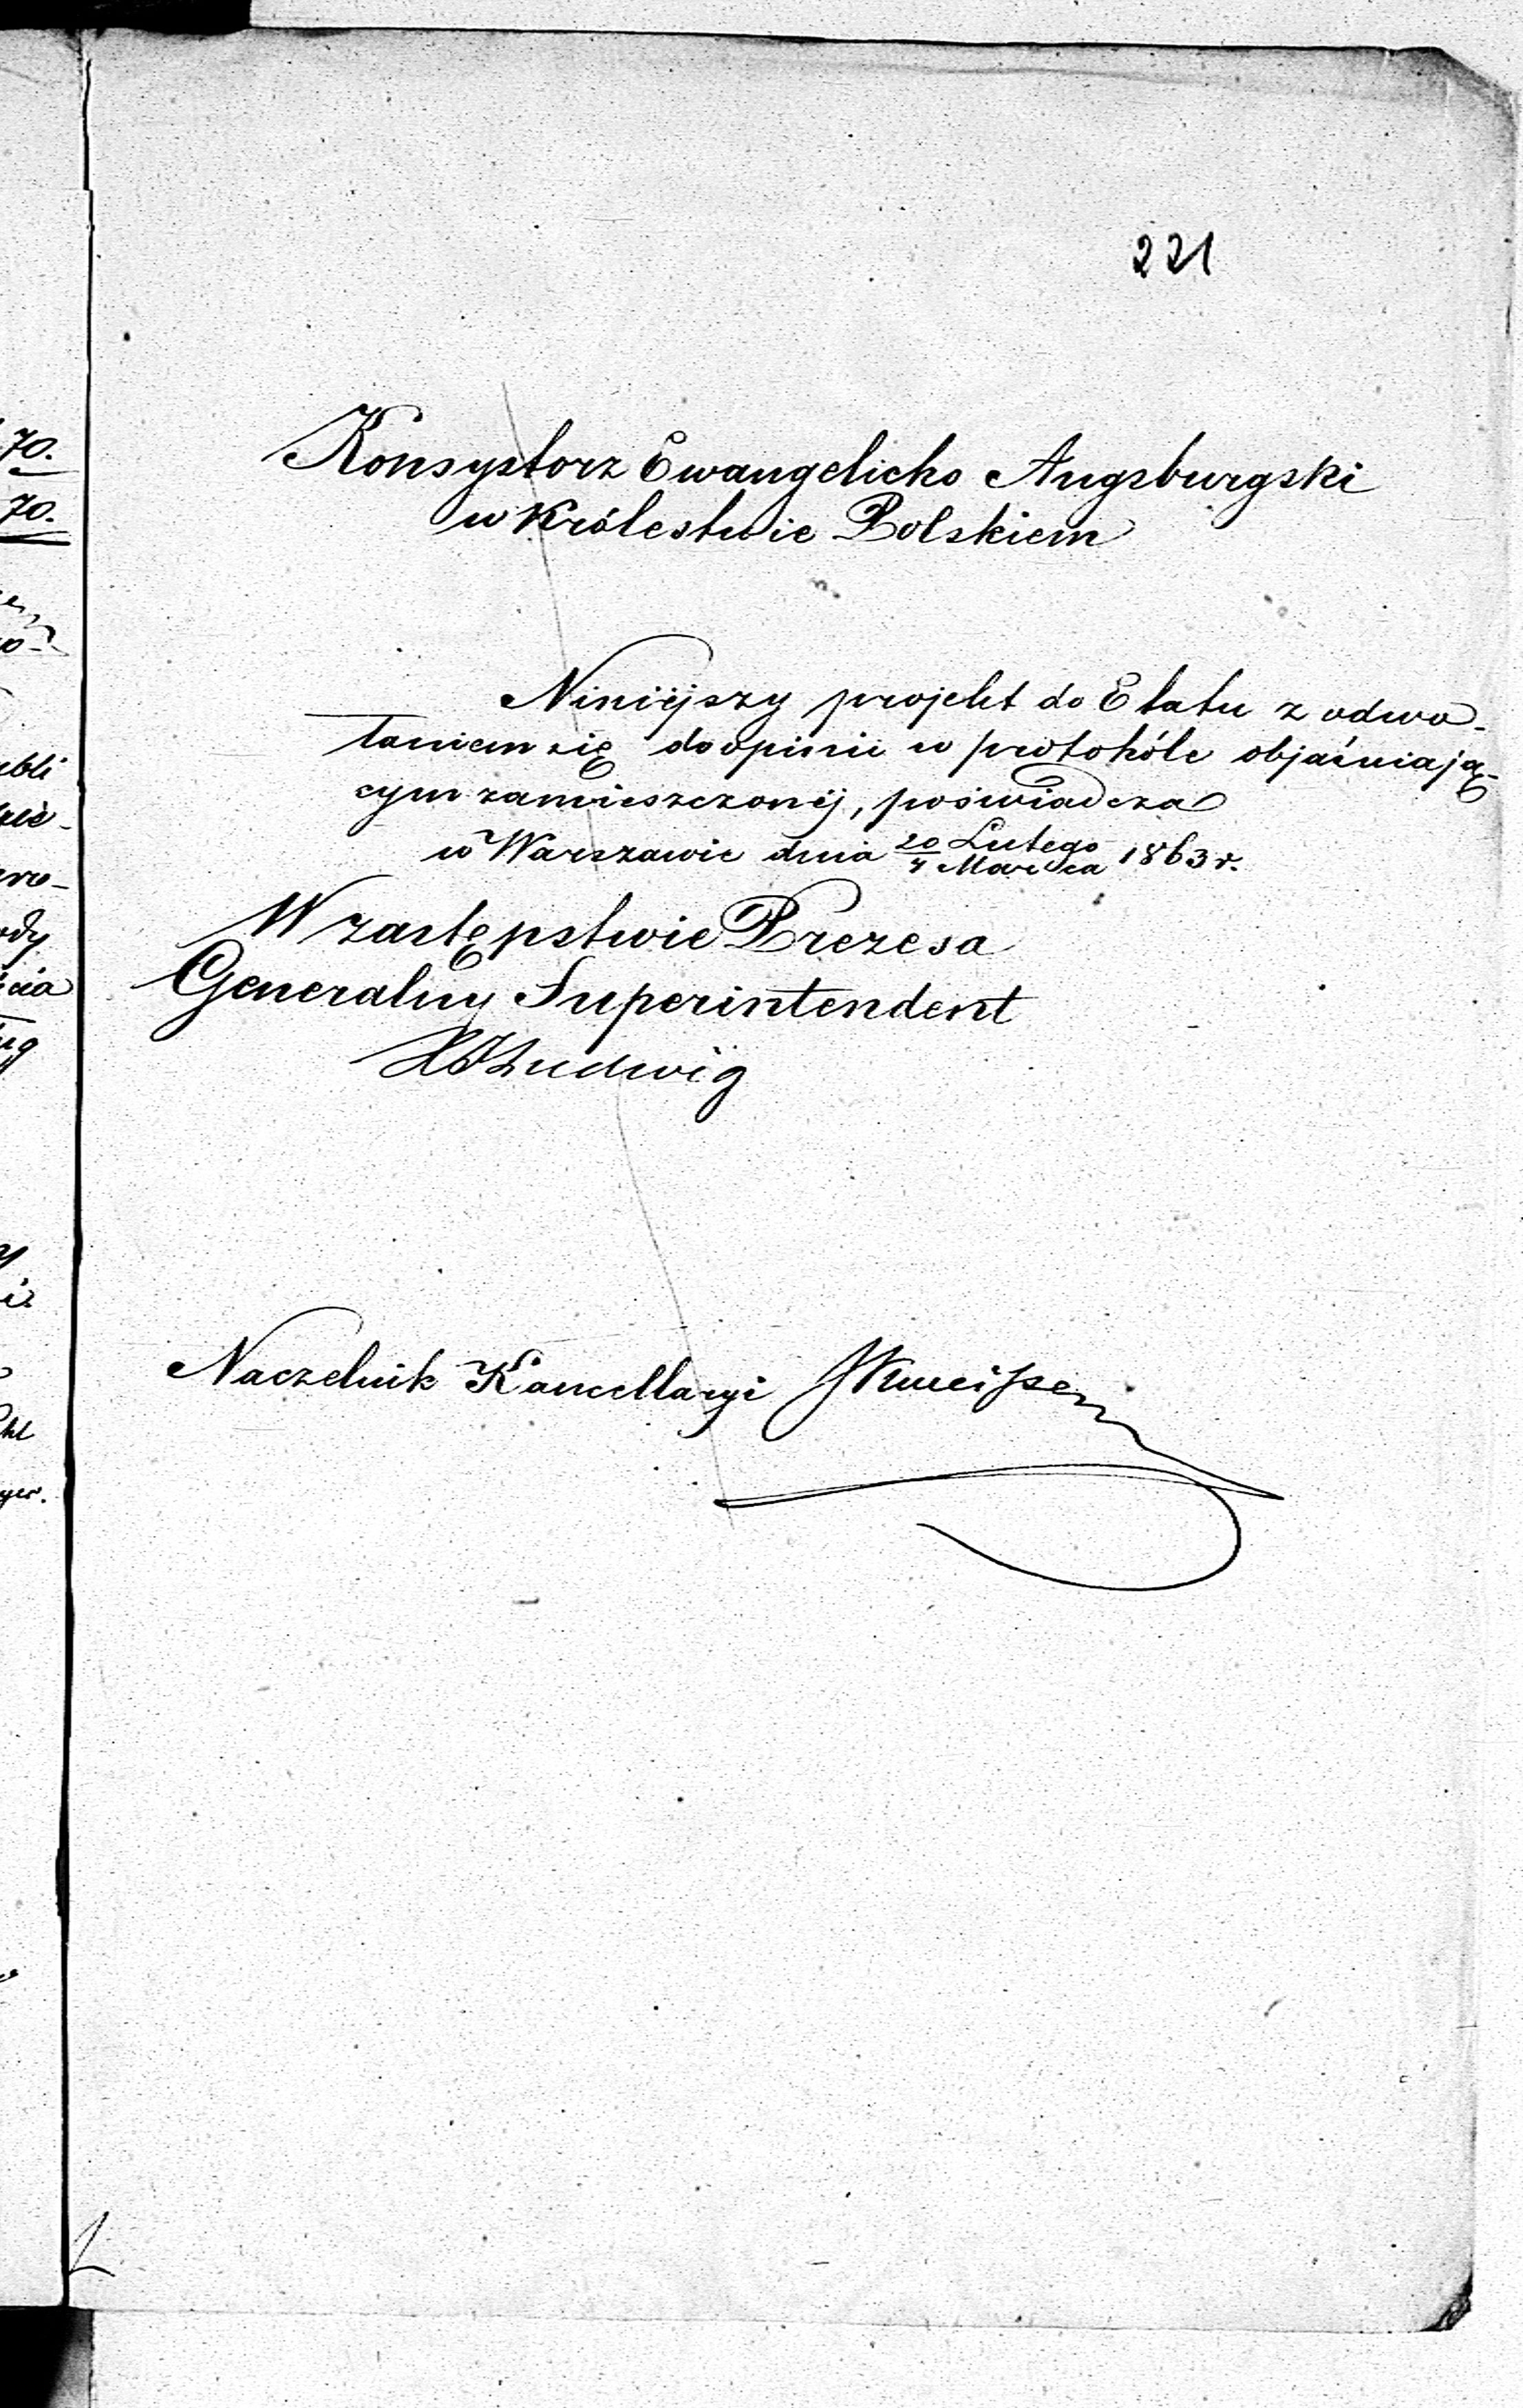 221
Konsystorz Ewangelicko Augsburgski
w Królestwie Polskiem
Niniejszy projekt do Etatu z odwo-
łaniem się do opinii w protokóle objaśniają-
cym zamieszczonej, poświadcza
w Warszawie dnia 20 Lutego / 4 Marca 1863 r.
W zastępstwie Prezesa
Generalny Superintendent
Ludwig
Naczelnik Kancellaryi
70.
70.